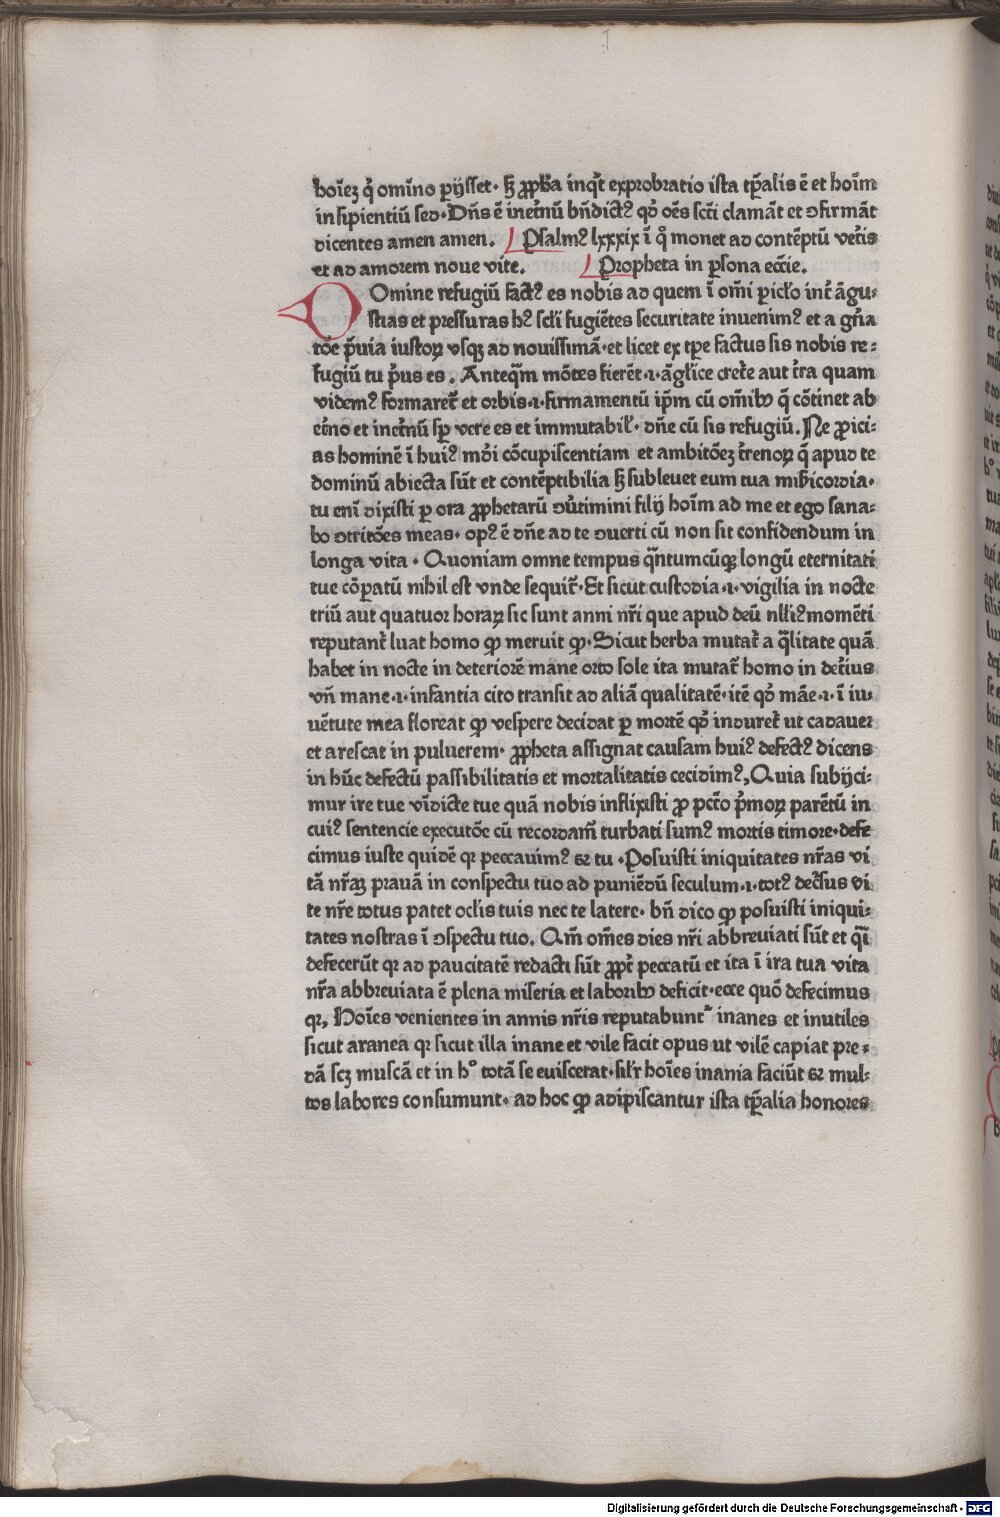 hoīez q̄ omīno ꝑijsset· sꝫ ꝓph̄a inq̄t exprobratio ista tꝑalis ē et hoīm
insipientiū sed·Dn̄s ē inet̄nū bn̄dictꝰ qđ oēs sc̄ti clamāt et ꝯfirmāt
dicentes amen amen. Psalmꝰ lxxxix ī q̄ monet ad contēptū vet̄is
et ad amorem noue vite. Propheta in ꝑsona ecc̄ie.
Domine refugiū factꝰ es nobis ad quem ī om̄i ꝑicl̄o int̄ āgu-
stias et pressuras hꝰ sc̄li fugiētes securitate inuenimꝰ et a gn̄a
tōe p̄uia iustoꝝ vsqꝫ ad nouissimā·et licet ex tꝑe factus sis nobis re-
fugiū tu p̄us es. Anteq̄m mōtes fierēt·i·āglīce cret̄e aut t̄ra quam
videmꝰ formaret̄ et orbis·i·firmamentū ip̄m cū om̄ibꝫ q̄ cōtinet ab
et̄no et inet̄nū sꝑ vere es et immutabil̄· dn̄e cū sis refugiū. Ne ꝓici-
as hominē ī huiꝰ mōi cōcupiscentiam et ambitōez t̄renoꝝ q̄ apud te
dominū abiecta sūt et contēptibilia sꝫ subleuet eum tua mīsicordia·
tu enī dixisti ꝑ ora ꝓphetarū ꝯūtimini filij hoīm ad me et ego sana-
bo ꝯtritōes meas· opꝰ ē dn̄e ad te ꝯuerti cū non sit confidendum in
longa vita · Quoniam omne tempus q̄ntumcūqꝫ longū eternitati
tue cōꝑatū nihil est vnde sequit̄·Et sicut custodia·i·vigilia in nocte
triū aut quatuor horaꝝ sic sunt anni nr̄i que apud deū nlliꝰ momēti
reputant̄ luat homo ꝙ meruit ꝙ·Sicut herba mutat̄ a q̄litate quā
habet in nocte in deteriorē mane orto sole ita mutat̄ homo in det̄ius
vn̄ mane·i·infantia cito transit ad aliā qualitatē·itē qđ māe·i·ī iu-
uētute mea floreat ꝙ vespere decidat ꝑ mortē qđ induret̄ ut cadauer
et arescat in puluerem· ꝓpheta assignat causam huiꝰ defectꝰ dicens
in hūc defectū passibilitatis et mortalitatis cecidimꝰ, Quia subijci-
mur ire tue vīdicte tue quā nobis inflixisti ꝓ pctō p̄moꝝ parētū in
cuiꝰ sentencie executōe cū recordam̄ turbati sumꝰ mortis timore·defe
cimus iuste quidē qꝛ peccauimꝰ sꝫ tu ·Posuisti iniquitates nr̄as vi
tā nr̄aꝫ prauā in conspectu tuo ad puniēdū seculum·i·totꝰ dec̄sus vi
te nr̄e totus patet oclīs tuis nec te latere· bn̄ dico ꝙ posuisti iniqui-
tates nostras ī ꝯspectu tuo. Qm̄ om̄es dies nr̄i abbreuiati sūt et q̄si
defecerūt qꝛ ad paucitatē redacti sūt ꝓpt̄ peccatū et ita ī ira tua vita
nr̄a abbreuiata ē plena miseria et laboribꝫ deficit·ecce quō defecimus
qꝛ, Hoīes venientes in annis nr̄is reputabunt̄ inanes et inutiles
sicut aranea qꝛ sicut illa inane et vile facit opus ut vilē capiat pre-
dā scꝫ muscā et in hͦ totā se euiscerat·sil̄r hoīes inania faciūt sꝫ mul-
tos labores consumunt· ad hoc ꝙ adipiscantur ista tꝑalia honores
Digitalisierung gefördert durch die Deutsche Forschungsgemeinschaft - DFG